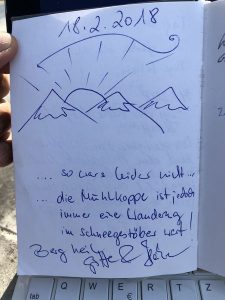 18.2.2018
... so wars leider nicht ...
... die Mühlkoppe ist jedoch
immer eine Wanderung
im Schneegestöber wert!
Berg heil
Gitte &
tab
Q W E R T Z
€